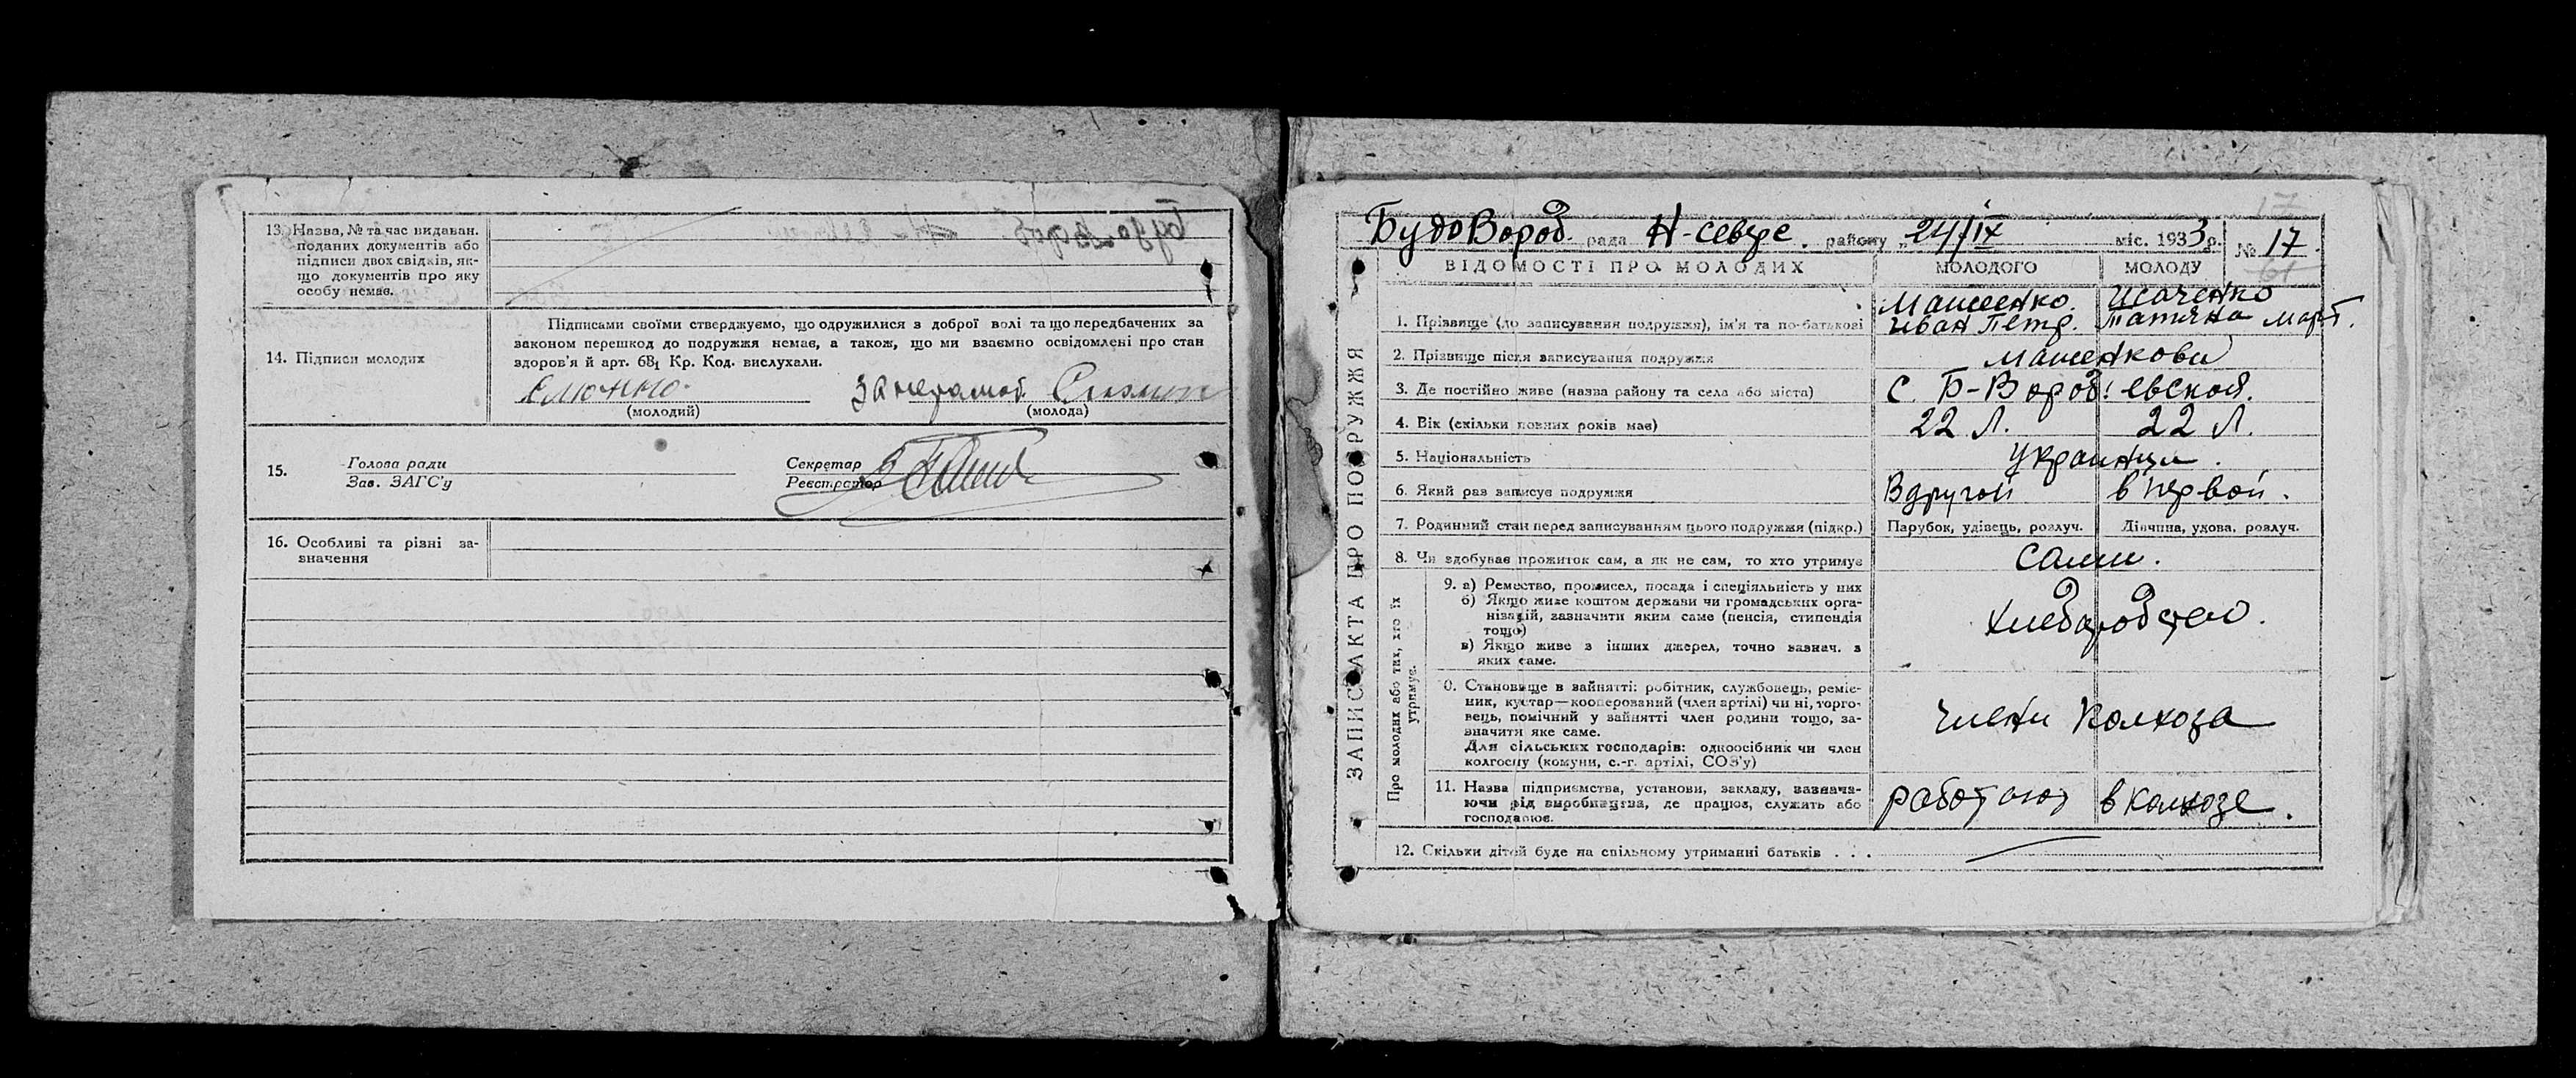 13. Назва, № та час видаван.
поданих документів або
підписи двох свідків, як-
що документів про яку
особу немає.
14. Підписи молодих
Підписами своїми стверджуємо, що одружилися з доброї волі та що передбачених за
законом перешкод до подружжя немає, а також, що ми взаємно освідомлені про стан
здоров'я й арт. 68₁ Кр. Код. вислухали.
за неграмот.
(молодий) (молода)
15. Голова ради
Зав. ЗАГС'у
Секретар
Реєстратор
16. Особливі та різні за-
значення
ЗАПИС АКТА ПРО ПОДРУЖЖЯ
БудоВороб. рада Н-севере. району „24/IX міс. 1933р. № 17
61
ВІДОМОСТІ ПРО МОЛОДИХ МОЛОДОГО МОЛОДУ
1. Прізвище (до записування подружжя), ім'я та по-батькові
Машенко Иван Петр.
Исаченко Татияна Март.
2. Прізвище після записування подружжя Машенкови
3. Де постійно живе (назва району та села або міста) с. Б-Вороб'евской.
4. Вік (скільки повних років має) 22 Л. 22 Л.
5. Національність Украинци.
6. Який раз записує подружжя Вдругой в первой.
7. Родинний стан перед записуванням цього подружжя (підкр.) Парубок, удівець, розлуч. Дівчина, удова, розлуч.
8. Чи здобуває прожиток сам, а як не сам, то хто утримує Сами.
Про молодих або тих, хто їх
утримує.
9. а) Ремество, промисел, посада і спеціяльність у них
б) Якщо живе коштом держави чи громадських орга-
нізацій, зазначити яким саме (пенсія, стипендія
тощо)
в) Якщо живе з інших джерел, точно зазнач. з
яких саме.
хлебаробство.
0. Становище в зайнятті: робітник, службовець, реміс-
ник, кустар—кооперований (член артілі) чи ні, торго-
вець, помічний у зайнятті член родини тощо, за-
значити яке саме.
Для сільських господарів: одноосібник чи член
колгоспу (комуни, с.-г. артілі, СОЗ'у)
члени колхоза
11. Назва підприємства, установи, закладу, зазнача-
ючи рід виробництва, де працює, служить або
господарює.
работают в колхозе.
12. Скільки дітей буде на спільному утриманні батьків . . .